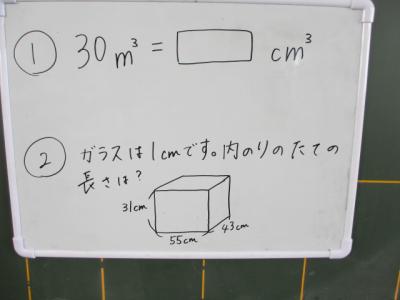 ① 30 m³ = □ cm³
② ガラスは1cmです。内のりのたての
長さは?
31cm
55cm
43cm